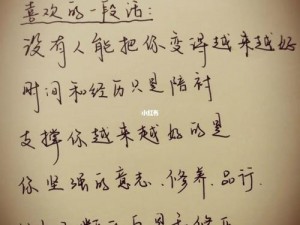 喜欢的一段话:
没有人能把你变得越来越好
时间和经历只是陪衬
小红书
支撑你越来越好的是
你坚强的意志.修养.品行.